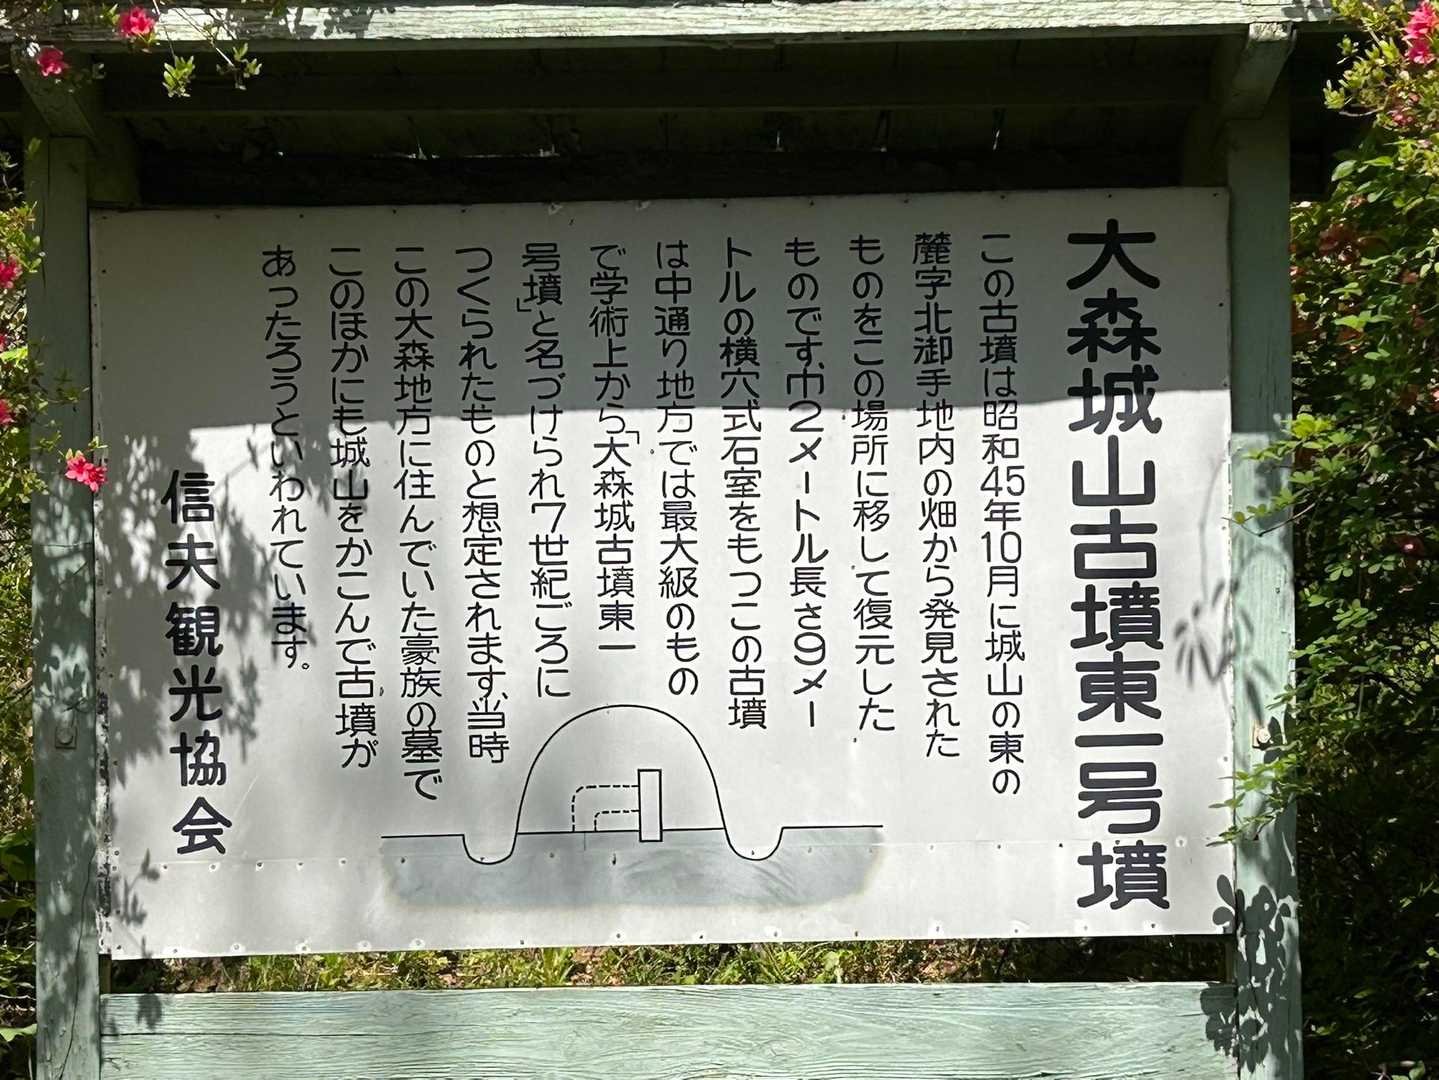 大森城山古墳東一号墳
この古墳は昭和45年10月に城山の東の
麓字北御手地内の畑から発見された
ものをこの場所に移して復元した
ものです、巾2メートル長さ9メー
トルの横穴式石室をもつこの古墳
は中通り地方では最大級のもの
で学術上から「大森城古墳東一
号墳」と名づけられ7世紀ごろに
つくられたものと想定されます、当時
この大森地方に住んでいた豪族の墓で
このほかにも城山をかこんで古墳が
あったろうといわれています。
信夫観光協会